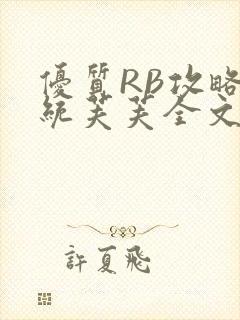 優質RB攻略
統芙芙全文
許夏飛